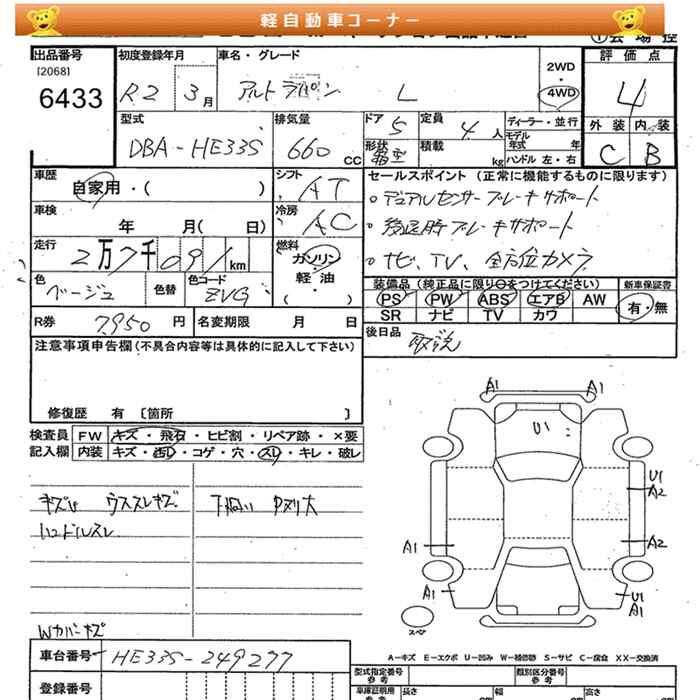 軽自動車コーナー
出品番号
[2068]
6433
初度登録年月
R2 3月
車名・グレード
アルトラパン L
2WD
・
4WD
評価点
4
外装 内装
C B
型式
DBA-HE33S
排気量
660 CC
ドア 5
定員 4人
形状 箱型
積載 kg
ディーラー・並行
モデル年式 年
ハンドル 左・右
車歴
自家用・( )
シフト
AT
セールスポイント (正常に機能するものに限ります)
・デュアルセンサーブレーキサポート
・後退時ブレーキサポート
・ナビ、TV、全方位カメラ
車検
年 月( 日)
冷房
AC
走行
2万7千091km
燃料
ガソリン
軽・油
・( )
色
ベージュ
色替
色コード
ZVG
装備品 (純正品に限り○をつけてください)
PS PW ABS エアB AW
SR ナビ TV カワ
新車保証書
有・無
R券 7,950円
名変期限 月 日
後日品
取説
注意事項申告欄 (不具合内容等は具体的に記入して下さい)
修復歴 有 [箇所 ]
検査員記入欄
FW キズ・飛石・ヒビ割・リペア跡・×要
内装 キズ・汚レ・コゲ・穴・スレ・キレ・破レ
キズU ウススレキズ
ハンドルスレ
下廻り
Wカバーキズ
A1 A1
U1
U1
A2
A1
A2
A1
U1
A1
スペア
A-キズ E-エクボ U-凹み W-補修跡 S-サビ C-腐食 XX-交換済
車台番号 HE33S-249277
登録番号
型式指定番号
参考
類別区分番号
参考
車庫証明用
参考
長さ
幅
高さ